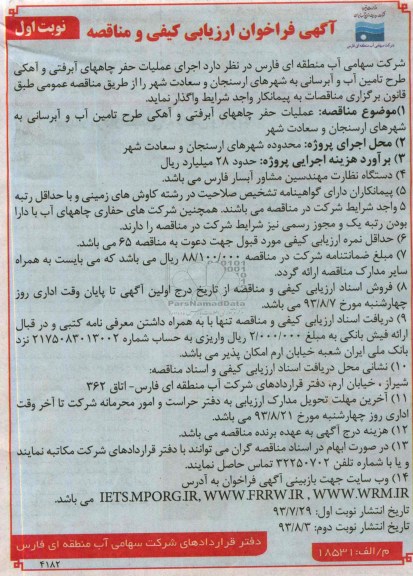 آگهی فراخوان ارزیابی کیفی و مناقصه
نوبت اول
شرکت سهامی آب منطقه ای فارس در نظر دارد اجرای عملیات حفر چاههای آبرفتی و آهکی
طرح تامین آب و آبرسانی به شهرهای ارسنجان و سعادت شهر را از طریق مناقصه عمومی طبق
قانون برگزاری مناقصات به پیمانکار واجد شرایط واگذار نماید.
۱)موضوع مناقصه: عملیات حفر چاههای آبرفتی و آهکی طرح تامین آب و آبرسانی به
شهرهای ارسنجان و سعادت شهر
۲) محل اجرای پروژه: محدوده شهرهای ارسنجان و سعادت شهر
۳) برآورد هزینه اجرایی پروژه: حدود ۲۸ میلیارد ریال
۴) دستگاه نظارت مهندسین مشاور آبسار فارس می باشد.
۵) پیمانکاران دارای گواهینامه تشخیص صلاحیت در رشته کاوش های زمینی و با حداقل رتبه
۵ واجد شرایط شرکت در مناقصه می باشند. همچنین شرکت های حفاری چاههای آب با دارا
بودن رتبه یک و مجوز رسمی نیز شرایط شرکت در مناقصه را دارند.
۶) حداقل نمره ارزیابی کیفی مورد قبول جهت دعوت به مناقصه ۶۵ می باشد.
۷) مبلغ ضمانتنامه شرکت در مناقصه ۸۸/۱۰۰/۰۰۰ ریال می باشد که می بایست به همراه
سایر مدارک مناقصه ارائه گردد.
۸) فروش اسناد ارزیابی کیفی و مناقصه از تاریخ درج اولین آگهی تا پایان وقت اداری روز
چهارشنبه مورخ ۹۳/۸/۷ می باشد.
۹) دریافت اسناد ارزیابی کیفی و مناقصه تنها با به همراه داشتن معرفی نامه کتبی و در قبال
ارائه فیش بانکی به مبلغ ۲/۰۰۰/۰۰۰ ریال واریزی به حساب شماره ۲۱۷۵۰۸۳۰۱۳۰۰۲ نزد
بانک ملی ایران شعبه خیابان ارم امکان پذیر می باشد.
۱۰) نشانی محل دریافت اسناد ارزیابی کیفی و اسناد مناقصه:
شیراز، خیابان ارم، دفتر قراردادهای شرکت آب منطقه ای فارس- اتاق ۳۶۲
۱۱) آخرین مهلت تحویل مدارک ارزیابی به دفتر حراست و امور محرمانه شرکت تا آخر وقت
اداری روز چهارشنبه مورخ ۹۳/۸/۲۱ می باشد.
۱۲) هزینه درج آگهی به عهده برنده مناقصه می باشد.
۱۳) در صورت ابهام در اسناد مناقصه گران می توانند با دفتر قراردادهای شرکت مکاتبه نمایند
و یا با شماره تلفن ۳۲۲۵۰۷۰۲ تماس حاصل نمایند.
۱۴) وب سایت جهت بازبینی آگهی فراخوان به آدرس
IETS.MPORG.IR, WWW.FRRW.IR , WWW.WRM.IR می باشد.
تاریخ انتشار نوبت اول: ۹۳/۷/۲۹
تاریخ انتشار نوبت دوم: ۹۳/۸/۳
دفتر قراردادهای شرکت سهامی آب منطقه ای فارس
م/الف: ۱۸۵۳۱
۴۱۸۲